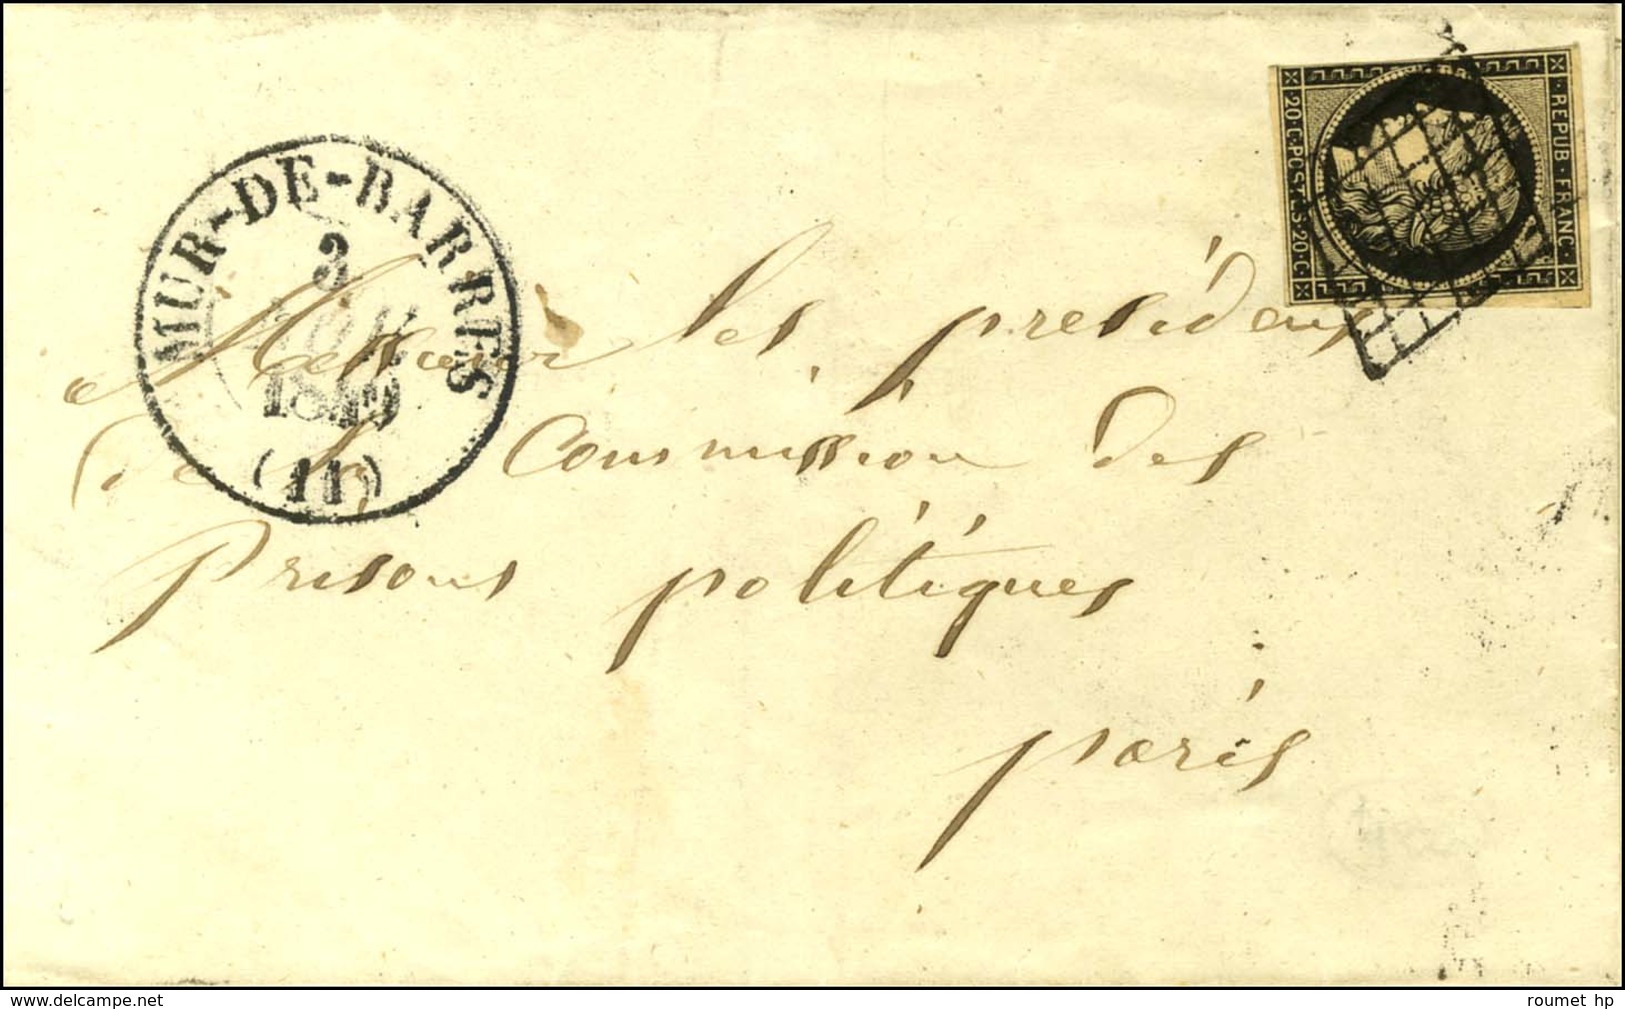 MUR-DE-BARRES
3
1849
(11)
REPUB·FRANC·
20·C·POSTES·20·C
Messieurs les présidents
de la Commission des
Prisons politiques
paris
delcampe.net
roumet hp